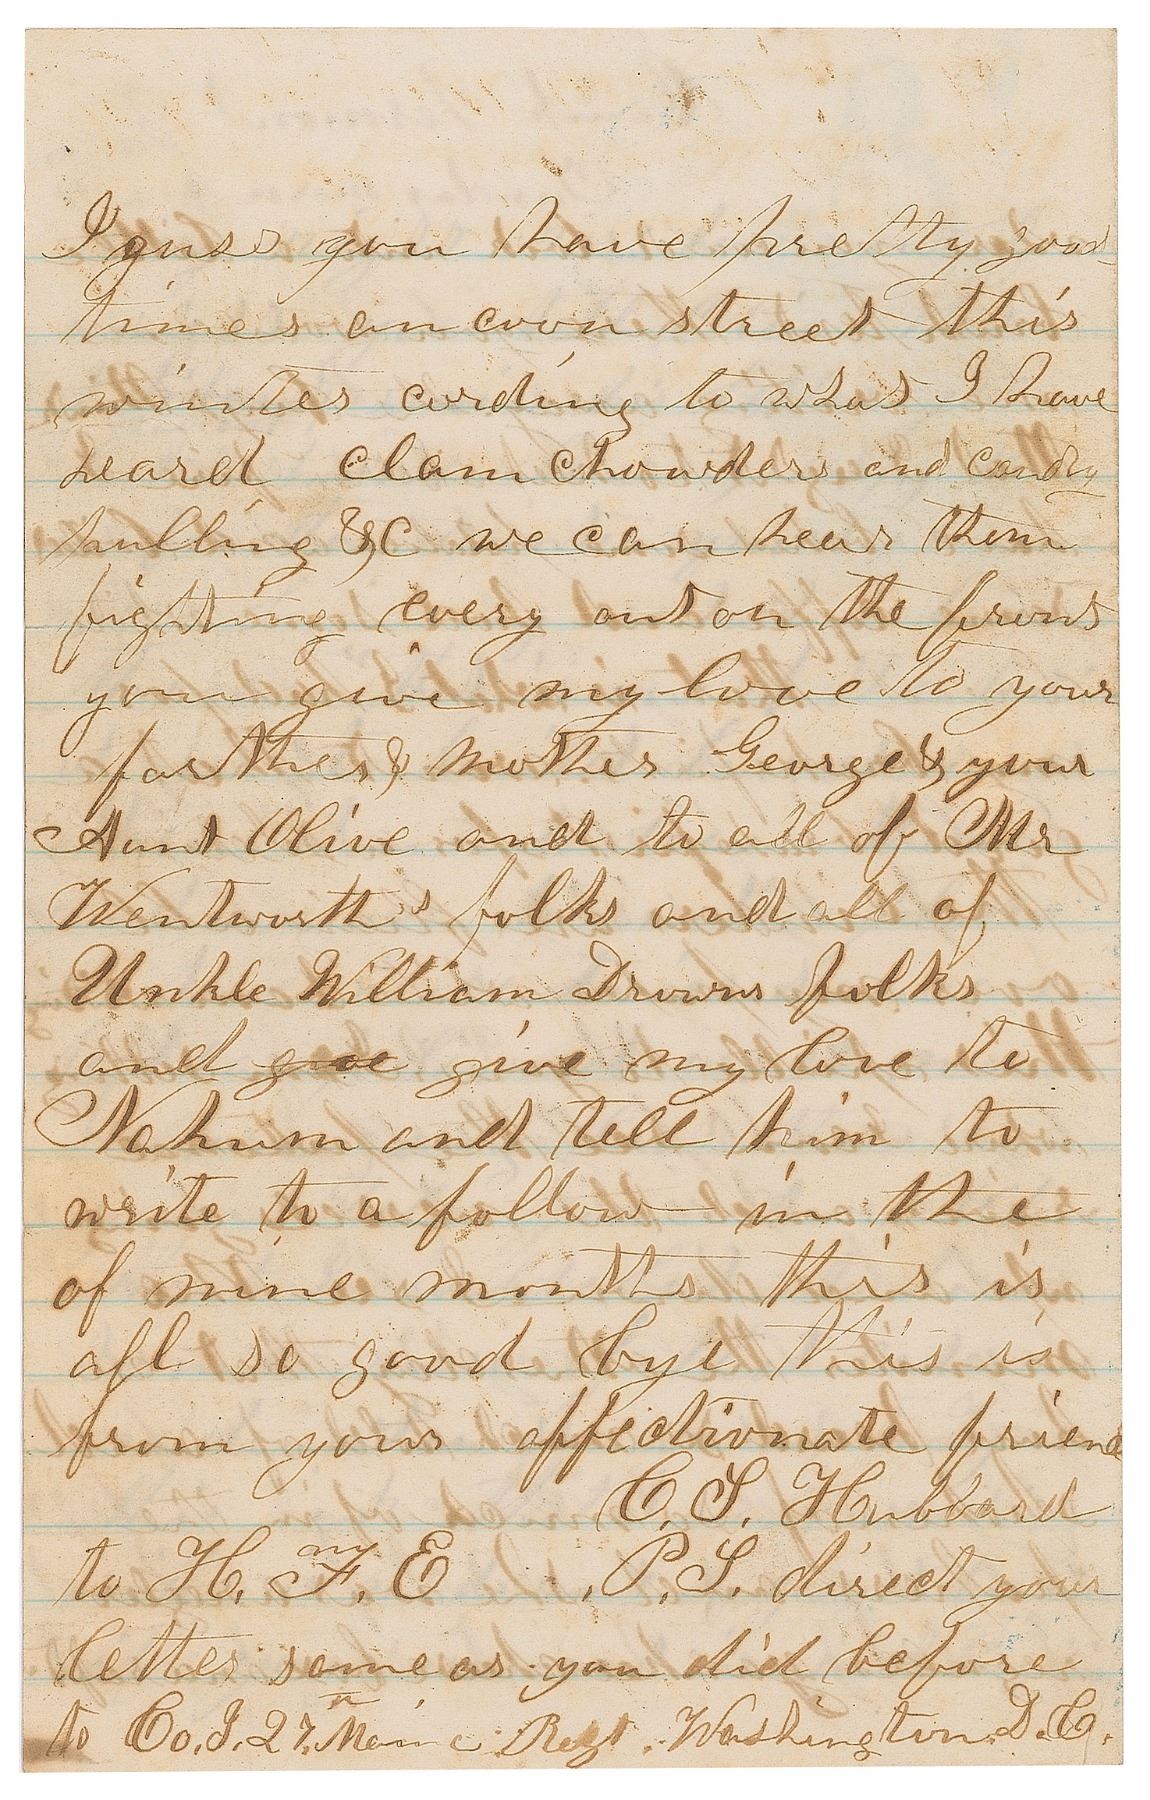 I guss you have pretty good
times on coon street this
winter cording to what I have
heard clam chowders and candy
pulling &C we can hear them
fighting every out on the front
you give my love to your
farther & mother George & your
Aunt Olive and to all of Mr
Wentworth's folks and all of
Unkle William Drowns folks
and give my love to
Nahum and tell him to
write to a follow in the
of nine months this is
all so good bye this is
from your affectionate friend
C. S. Hubbard
to H. F. E P.S. direct your
letter same as you did before
to Co. I. 27th Maine Regt. Washington D.C.